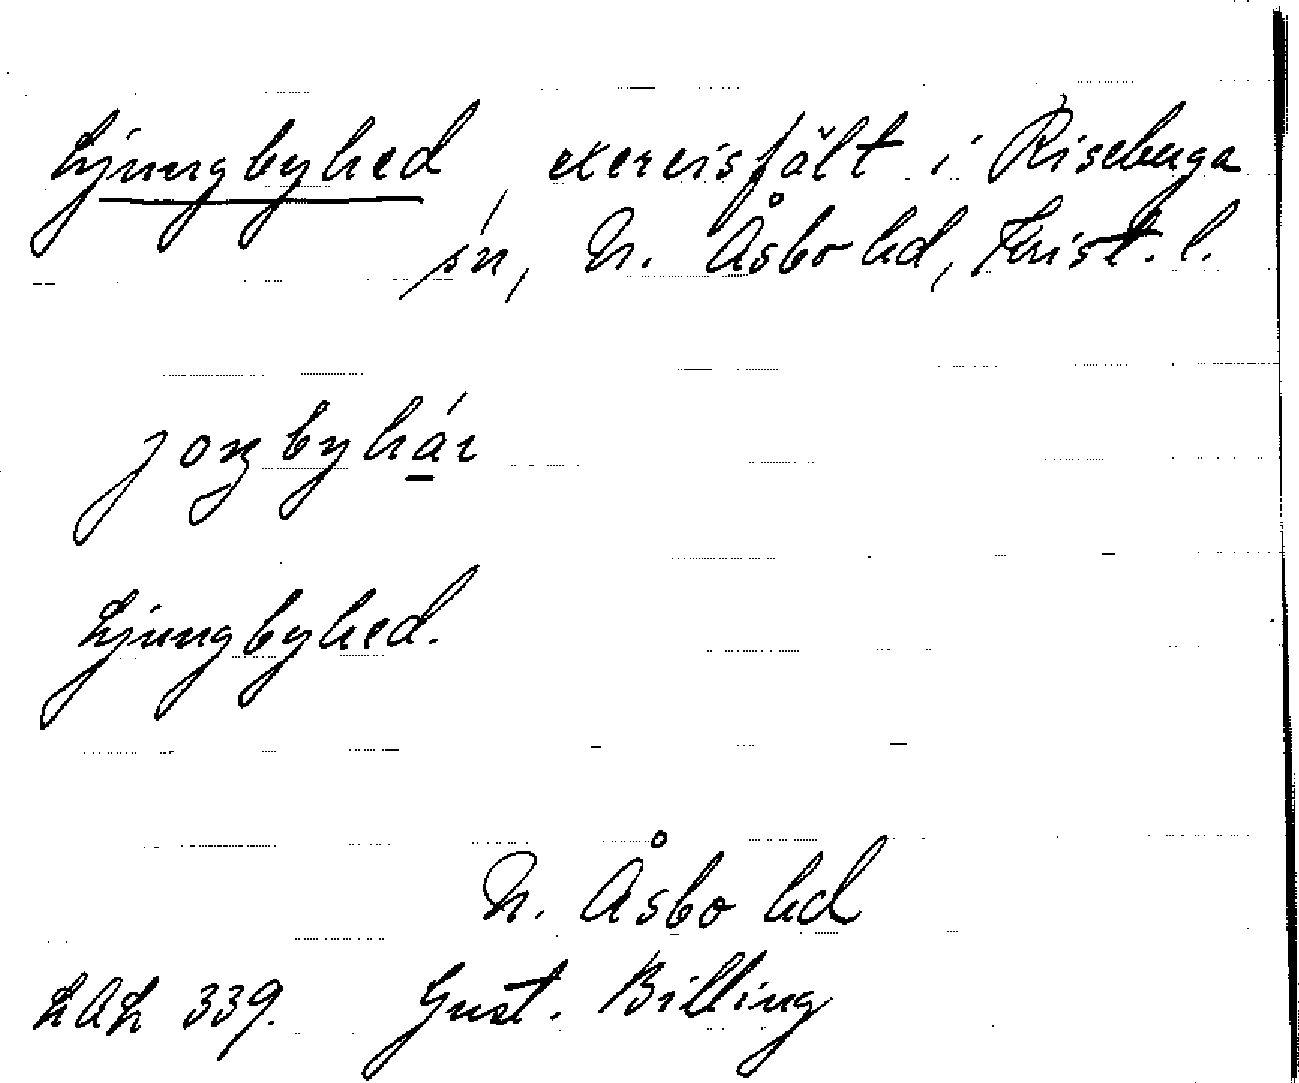 Ljungbyhed, exercisfält i Riseberga
sn, N. Åsbo hd, Krist. l.
joŋbyhá̱ɩ
Ljungbyhed.
N. Åsbo hd
LAL 339. Gust. Billing